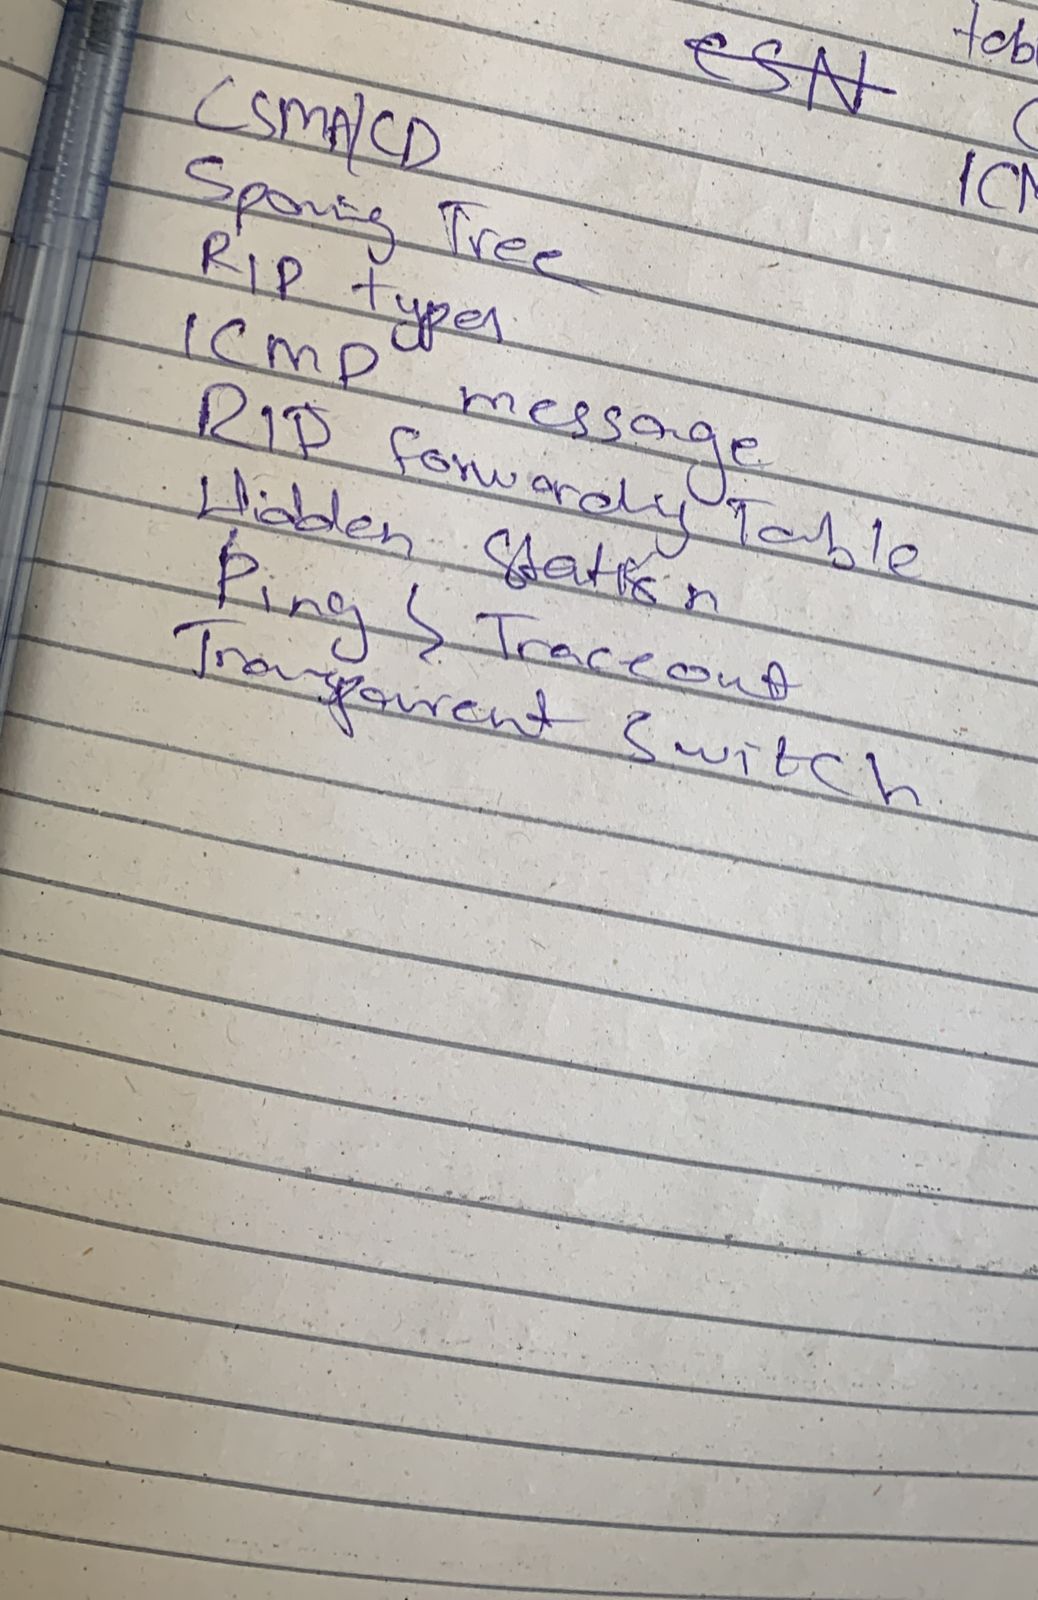 esN
CSMA/CD
Spaning Tree
RIP types
ICMP message
RIP forwardig Table
Hidden Station
Ping & Traceout
Transparent Switch